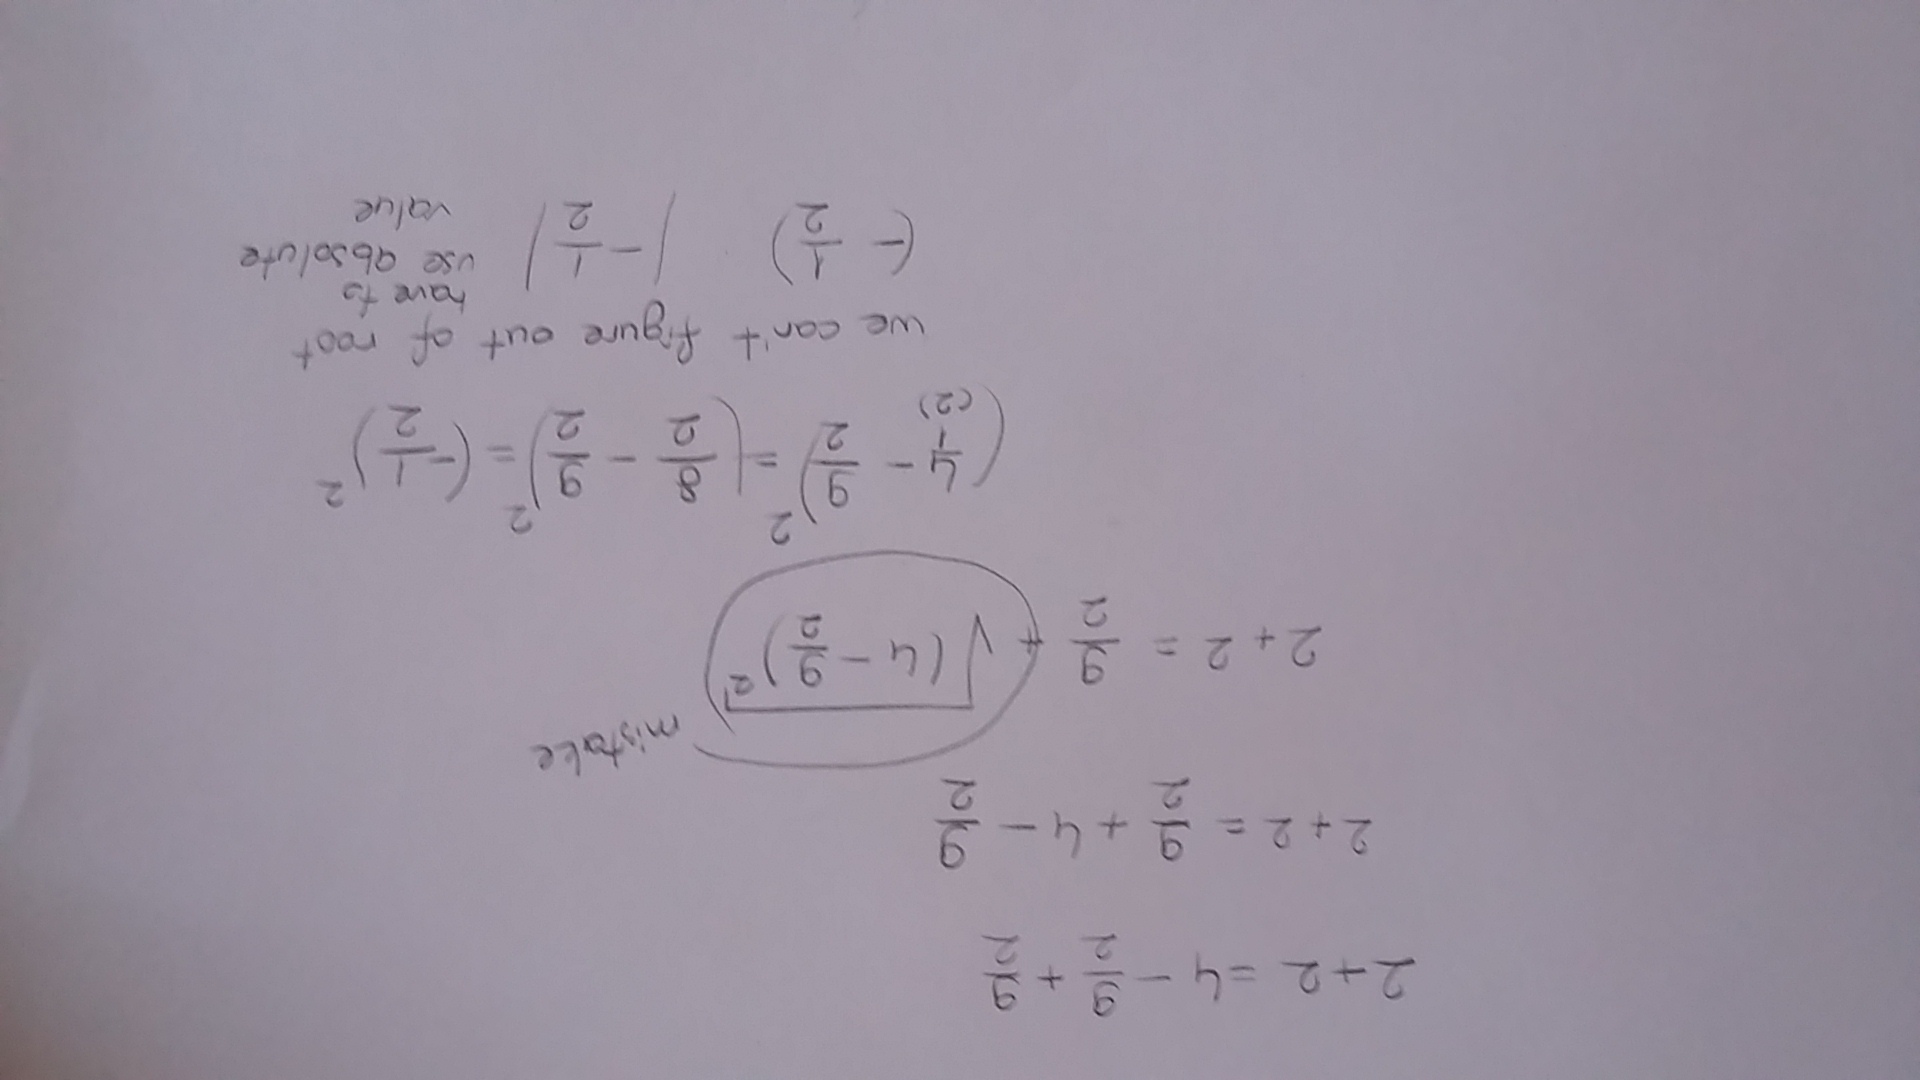 2+2 = 4 - 9/2 + 9/2
2+2 = 9/2 + 4 - 9/2
2+2 = 9/2 + √(4 - 9/2)² mistake
(4/1 - 9/2)² = (8/2 - 9/2)² = (-1/2)²
(2)
we can't figure out of root
(-1/2) |-1/2| have to use absolute value